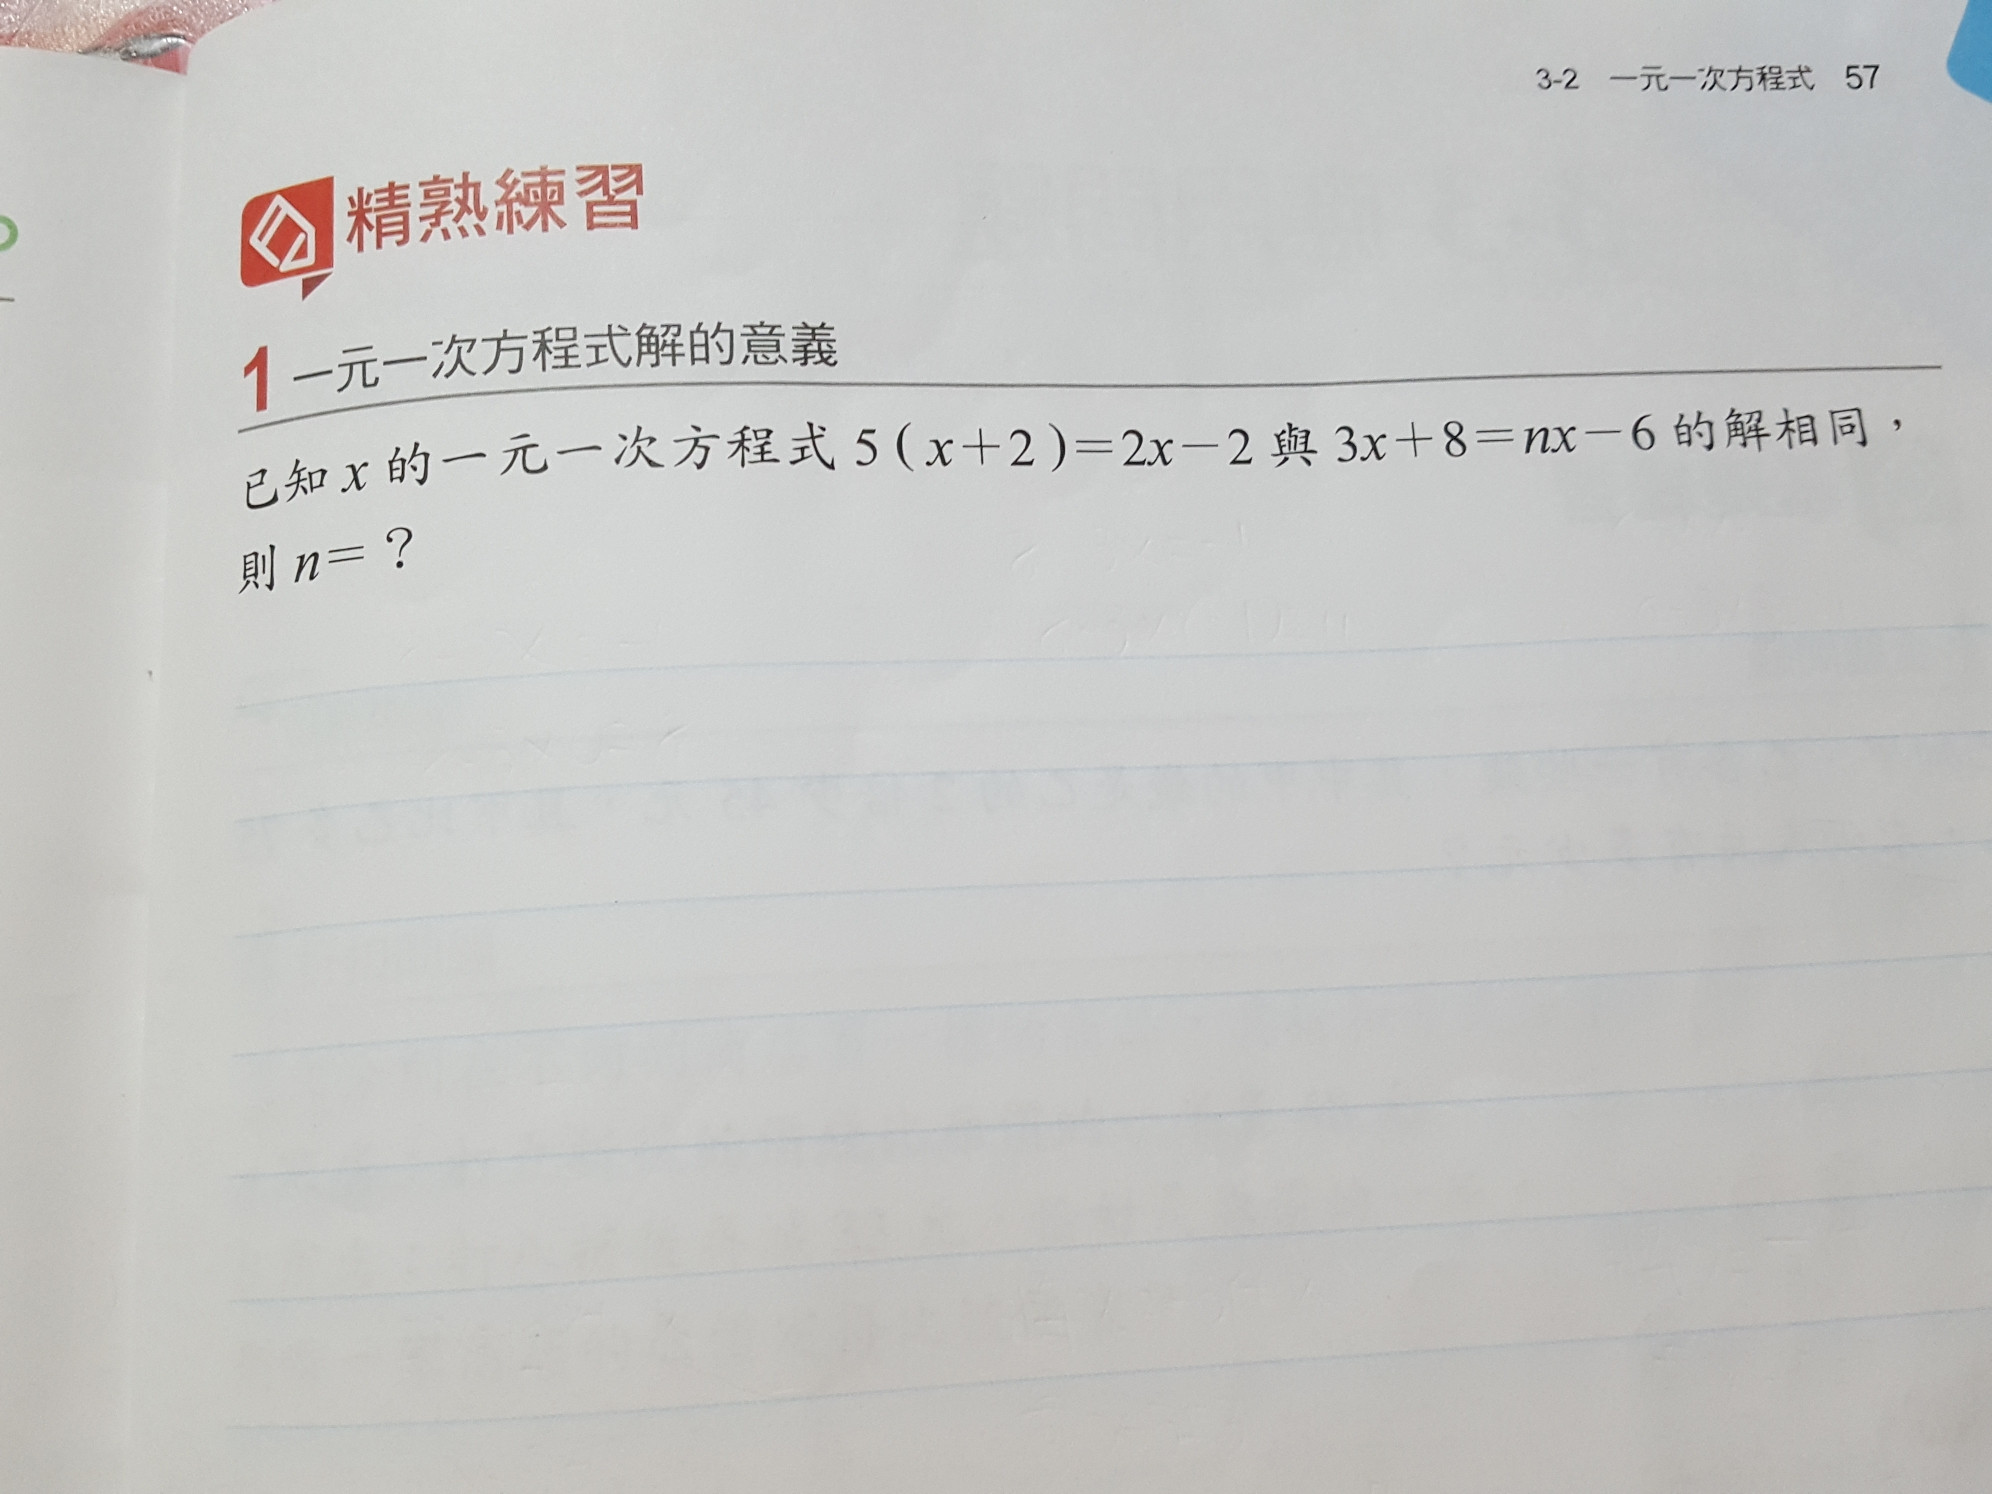 3-2 一元一次方程式 57
精熟練習
1 一元一次方程式解的意義
已知 x 的一元一次方程式 5(x+2)=2x-2 與 3x+8=nx-6 的解相同，
則 n=？